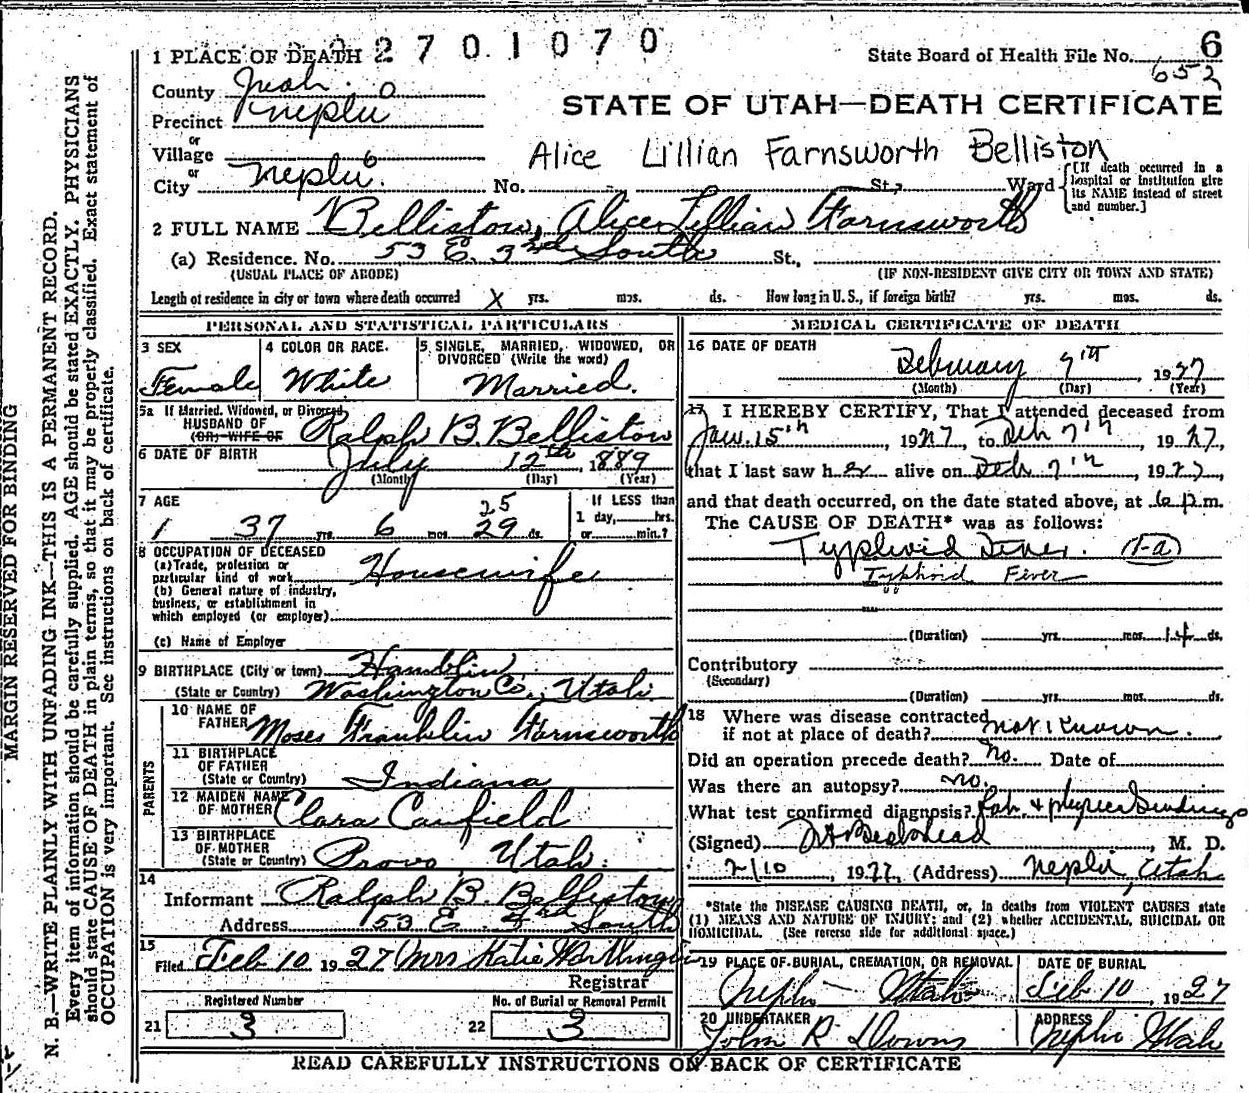 2701070
State Board of Health File No. 6
652
1 PLACE OF DEATH
County Juab
Precinct Nephi
or
Village
or
City Nephi No. St., Ward
STATE OF UTAH—DEATH CERTIFICATE
Alice Lillian Farnsworth Belliston
[If death occurred in a hospital or institution give its NAME instead of street and number.]
2 FULL NAME Belliston, Alice Lillian Farnsworth
(a) Residence. No. 53 E. 3rd South St.,
(USUAL PLACE OF ABODE) (IF NON-RESIDENT GIVE CITY OR TOWN AND STATE)
Length of residence in city or town where death occurred X yrs. mos. ds. How long in U.S., if foreign birth? yrs. mos. ds.
PERSONAL AND STATISTICAL PARTICULARS
3 SEX
Female
4 COLOR OR RACE.
White
5 SINGLE, MARRIED, WIDOWED, OR DIVORCED (Write the word)
Married.
5a If Married, Widowed, or Divorced
HUSBAND OF
(OR) WIFE OF Ralph B. Belliston
6 DATE OF BIRTH July 12th, 1889
(Month) (Day) (Year)
7 AGE
25
1 37 yrs. 6 mos. 29 ds.
If LESS than
1 day, hrs.
or min.?
8 OCCUPATION OF DECEASED
(a) Trade, profession or
particular kind of work Housewife
(b) General nature of industry,
business, or establishment in
which employed (or employer)
(c) Name of Employer
9 BIRTHPLACE (City or town) Hamblin
(State or Country) Washington Co., Utah
PARENTS
10 NAME OF
FATHER Moses Franklin Farnsworth
11 BIRTHPLACE
OF FATHER
(State or Country) Indiana
12 MAIDEN NAME
OF MOTHER Clara Canfield
13 BIRTHPLACE
OF MOTHER
(State or Country) Provo Utah.
14
Informant Ralph B. Belliston
Address 53 E. 3rd South
15
Filed Feb 10 1927 Mrs Katie
Registrar
Registered Number
21 3
No. of Burial or Removal Permit
22 3
MEDICAL CERTIFICATE OF DEATH
16 DATE OF DEATH
February 7th, 1927
(Month) (Day) (Year)
17 I HEREBY CERTIFY, That I attended deceased from
Jan. 15th 1927, to Feb 7th 1927,
that I last saw her alive on Feb. 7th 1927,
and that death occurred, on the date stated above, at 6 p.m.
The CAUSE OF DEATH* was as follows:
Typhoid Fever. (1-a)
Typhoid Fever
(Duration) yrs. mos. 14 ds.
Contributory
(Secondary)
(Duration) yrs. mos. ds.
18 Where was disease contracted
if not at place of death? not known.
Did an operation precede death? no. Date of
Was there an autopsy? no.
What test confirmed diagnosis? Lab. & findings
(Signed) , M. D.
2/10, 1927, (Address) Nephi, Utah
*State the DISEASE CAUSING DEATH, or, in deaths from VIOLENT CAUSES state
(1) MEANS AND NATURE OF INJURY; and (2) whether ACCIDENTAL, SUICIDAL OR
HOMICIDAL. (See reverse side for additional space.)
19 PLACE OF BURIAL, CREMATION, OR REMOVAL
Nephi Utah
DATE OF BURIAL
Feb 10, 1927
20 UNDERTAKER
John R Downs
ADDRESS
Nephi Utah
READ CAREFULLY INSTRUCTIONS ON BACK OF CERTIFICATE
MARGIN RESERVED FOR BINDING
N. B.—WRITE PLAINLY WITH UNFADING INK—THIS IS A PERMANENT RECORD.
Every item of information should be carefully supplied. AGE should be stated EXACTLY. PHYSICIANS
should state CAUSE OF DEATH in plain terms, so that it may be properly classified. Exact statement of
OCCUPATION is very important. See instructions on back of certificate.